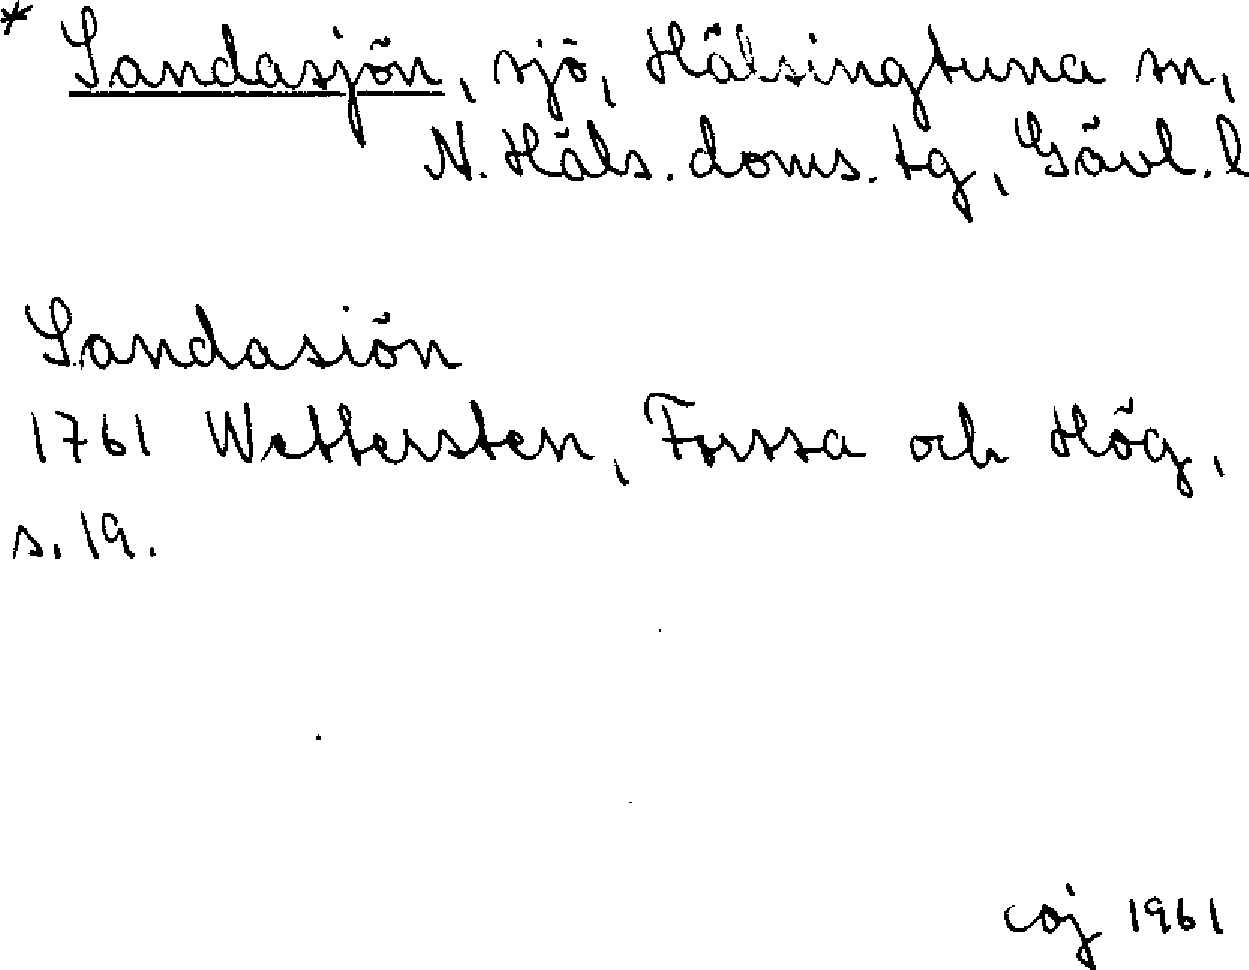 * Sandasjön, sjö, Hälsingtuna sn,
N. Häls. doms. tg, Gävl. l
Sandasiön
1761 Wettersten, Forssa och Hög,
s. 19.
coj 1961